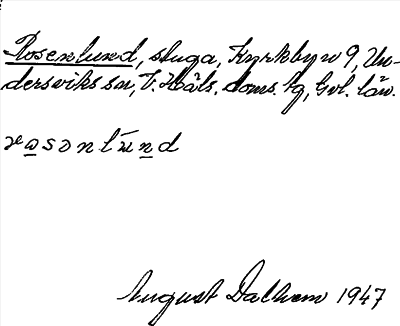 Rosenlund, stuga, Kyrkbyn 9, Un-
dersviks sn, V. Häls. doms. tg, Gvl. län.
rosonlund
August Dalhem 1947